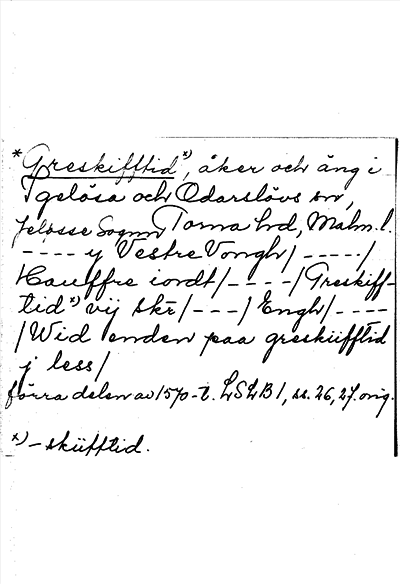 *Greskifftid*), åker och äng i
Igelösa och Odarslövs snr,
Jeløsse Sognn Torna hrd, Malm. l.
---- y Vestre Vongh/ -----/
Hauffre iordt/----/Greskiff-
tid*) vij skr/---/Engh/----
/Wid enden paa greskiifftid
j less/
förra delen av 1570-t. LSLB1, ss. 26, 27. orig.
*)-skiifftid.